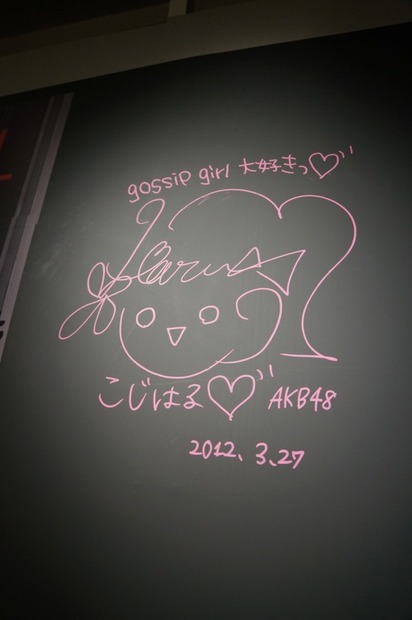 gossip girl 大好きっ♡
こじはる♡ AKB48
2012. 3. 27